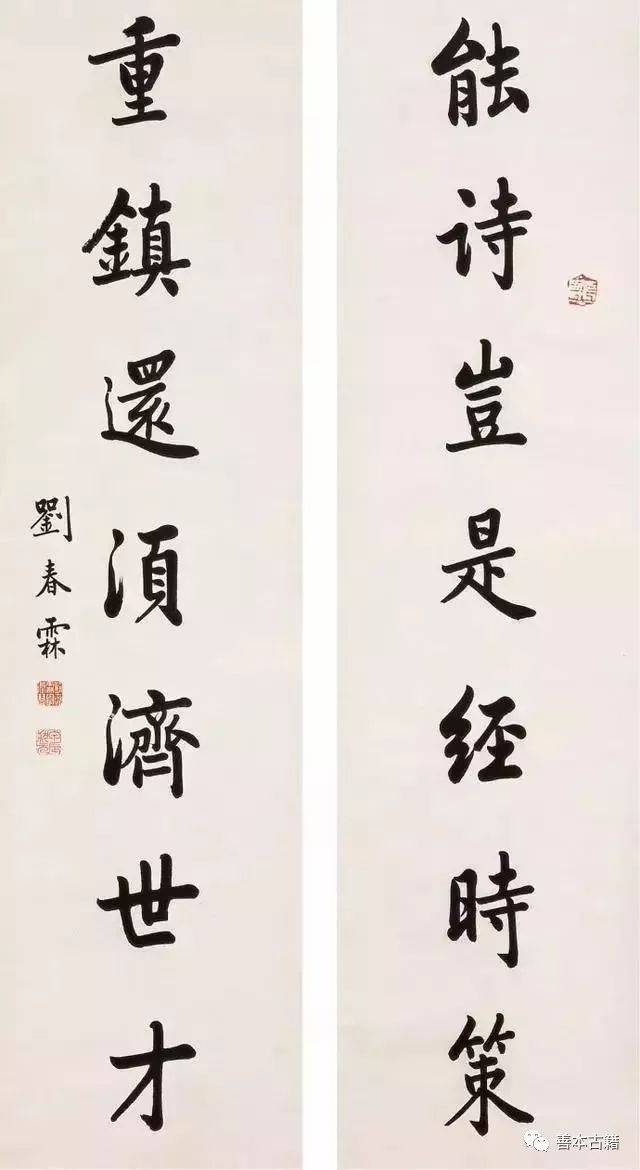 能诗豈是经時策
重鎮還須濟世才
劉春霖
善本古籍